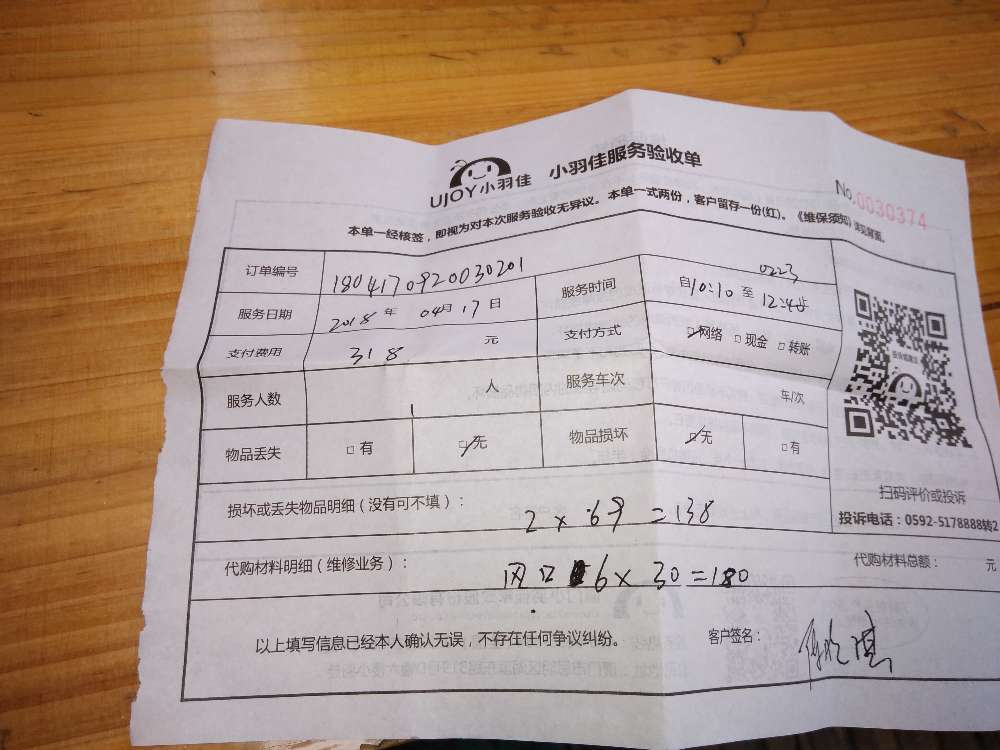 UJOY小羽佳 小羽佳服务验收单
No.0030374
本单一经核签，即视为对本次服务验收无异议。本单一式两份，客户留存一份(红)。《维保须知》详见背面。
订单编号 1804170920030201
0223
服务时间 自10:10 至 12:45
服务日期 2018 年 04月 17 日
支付费用 318 元 支付方式 ☑网络 □现金 □转账
服务人数 1 人 服务车次 车/次
物品丢失 □有 ☑无 物品损坏 ☑无 □有
损坏或丢失物品明细（没有可不填）：
2 × 69 = 138
代购材料明细（维修业务）：
风口 6 × 30 = 180
代购材料总额： 元
以上填写信息已经本人确认无误，不存在任何争议纠纷。 客户签名：
扫码评价或投诉
投诉电话：0592-5178888转2